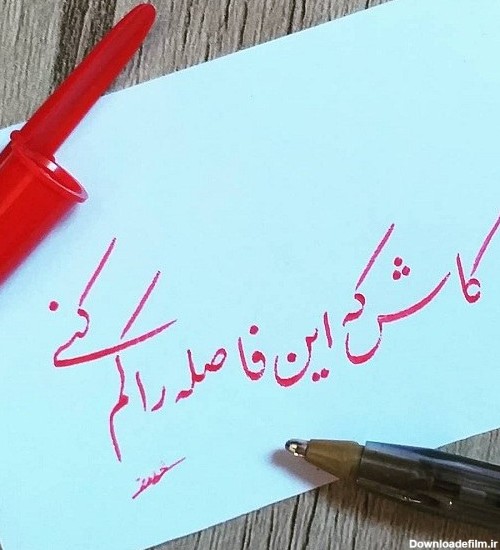 کاش که این فاصله را کم کنی
Downloadefilm.ir